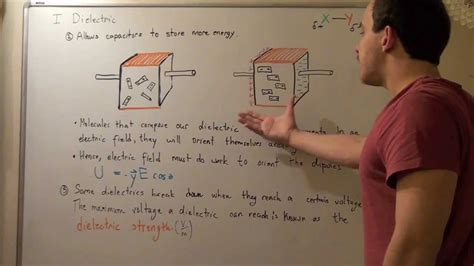 I Dielectric
δ+ X — Y
② Allows capacitors to store more energy.
• Molecules that compose our dielectric
electric field, they will orient themselves
• Hence, electric field must do work to orient the dipoles
U = - E cos
③ Some dielectrics break down when they reach a certain voltage
The maximum voltage a dielectric can reach is known as the
dielectric strength